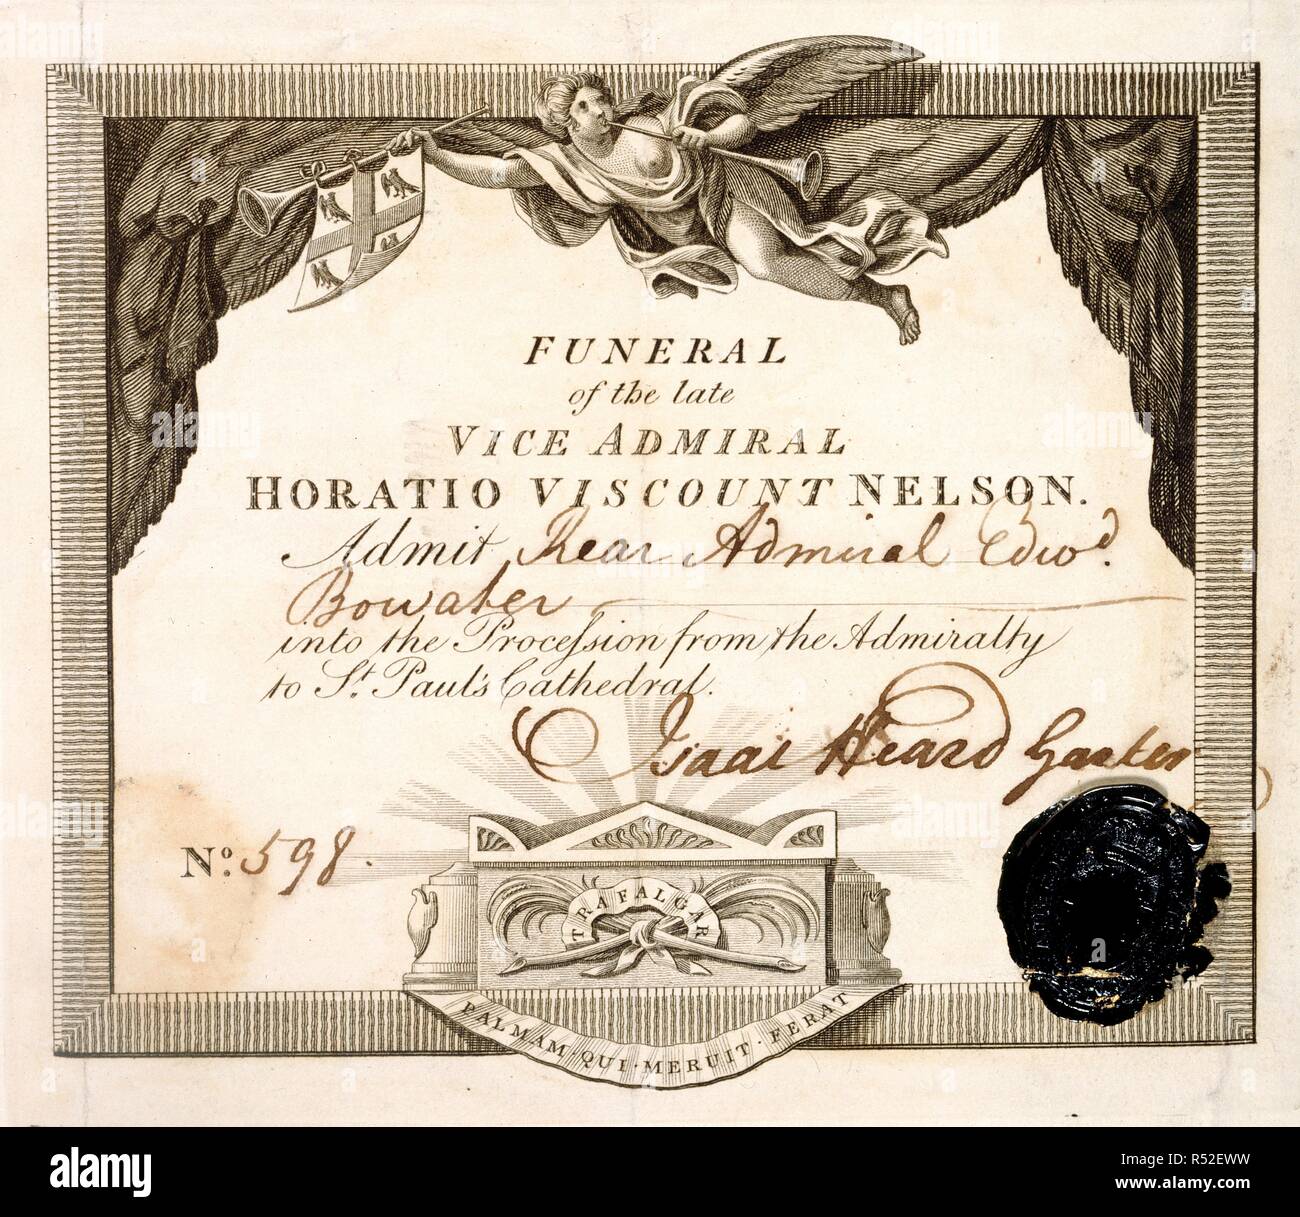 FUNERAL
of the late
VICE ADMIRAL
HORATIO VISCOUNT NELSON.
Admit Rear Admiral Edwd.
Bowater
into the Proceſsion from the Admiralty
to St. Paul's Cathedral.
Isaac Heard Garter
No. 598.
TRAFALGAR
PALMAM · QUI · MERUIT · FERAT
alamy
Image ID: R52EWW
www.alamy.com